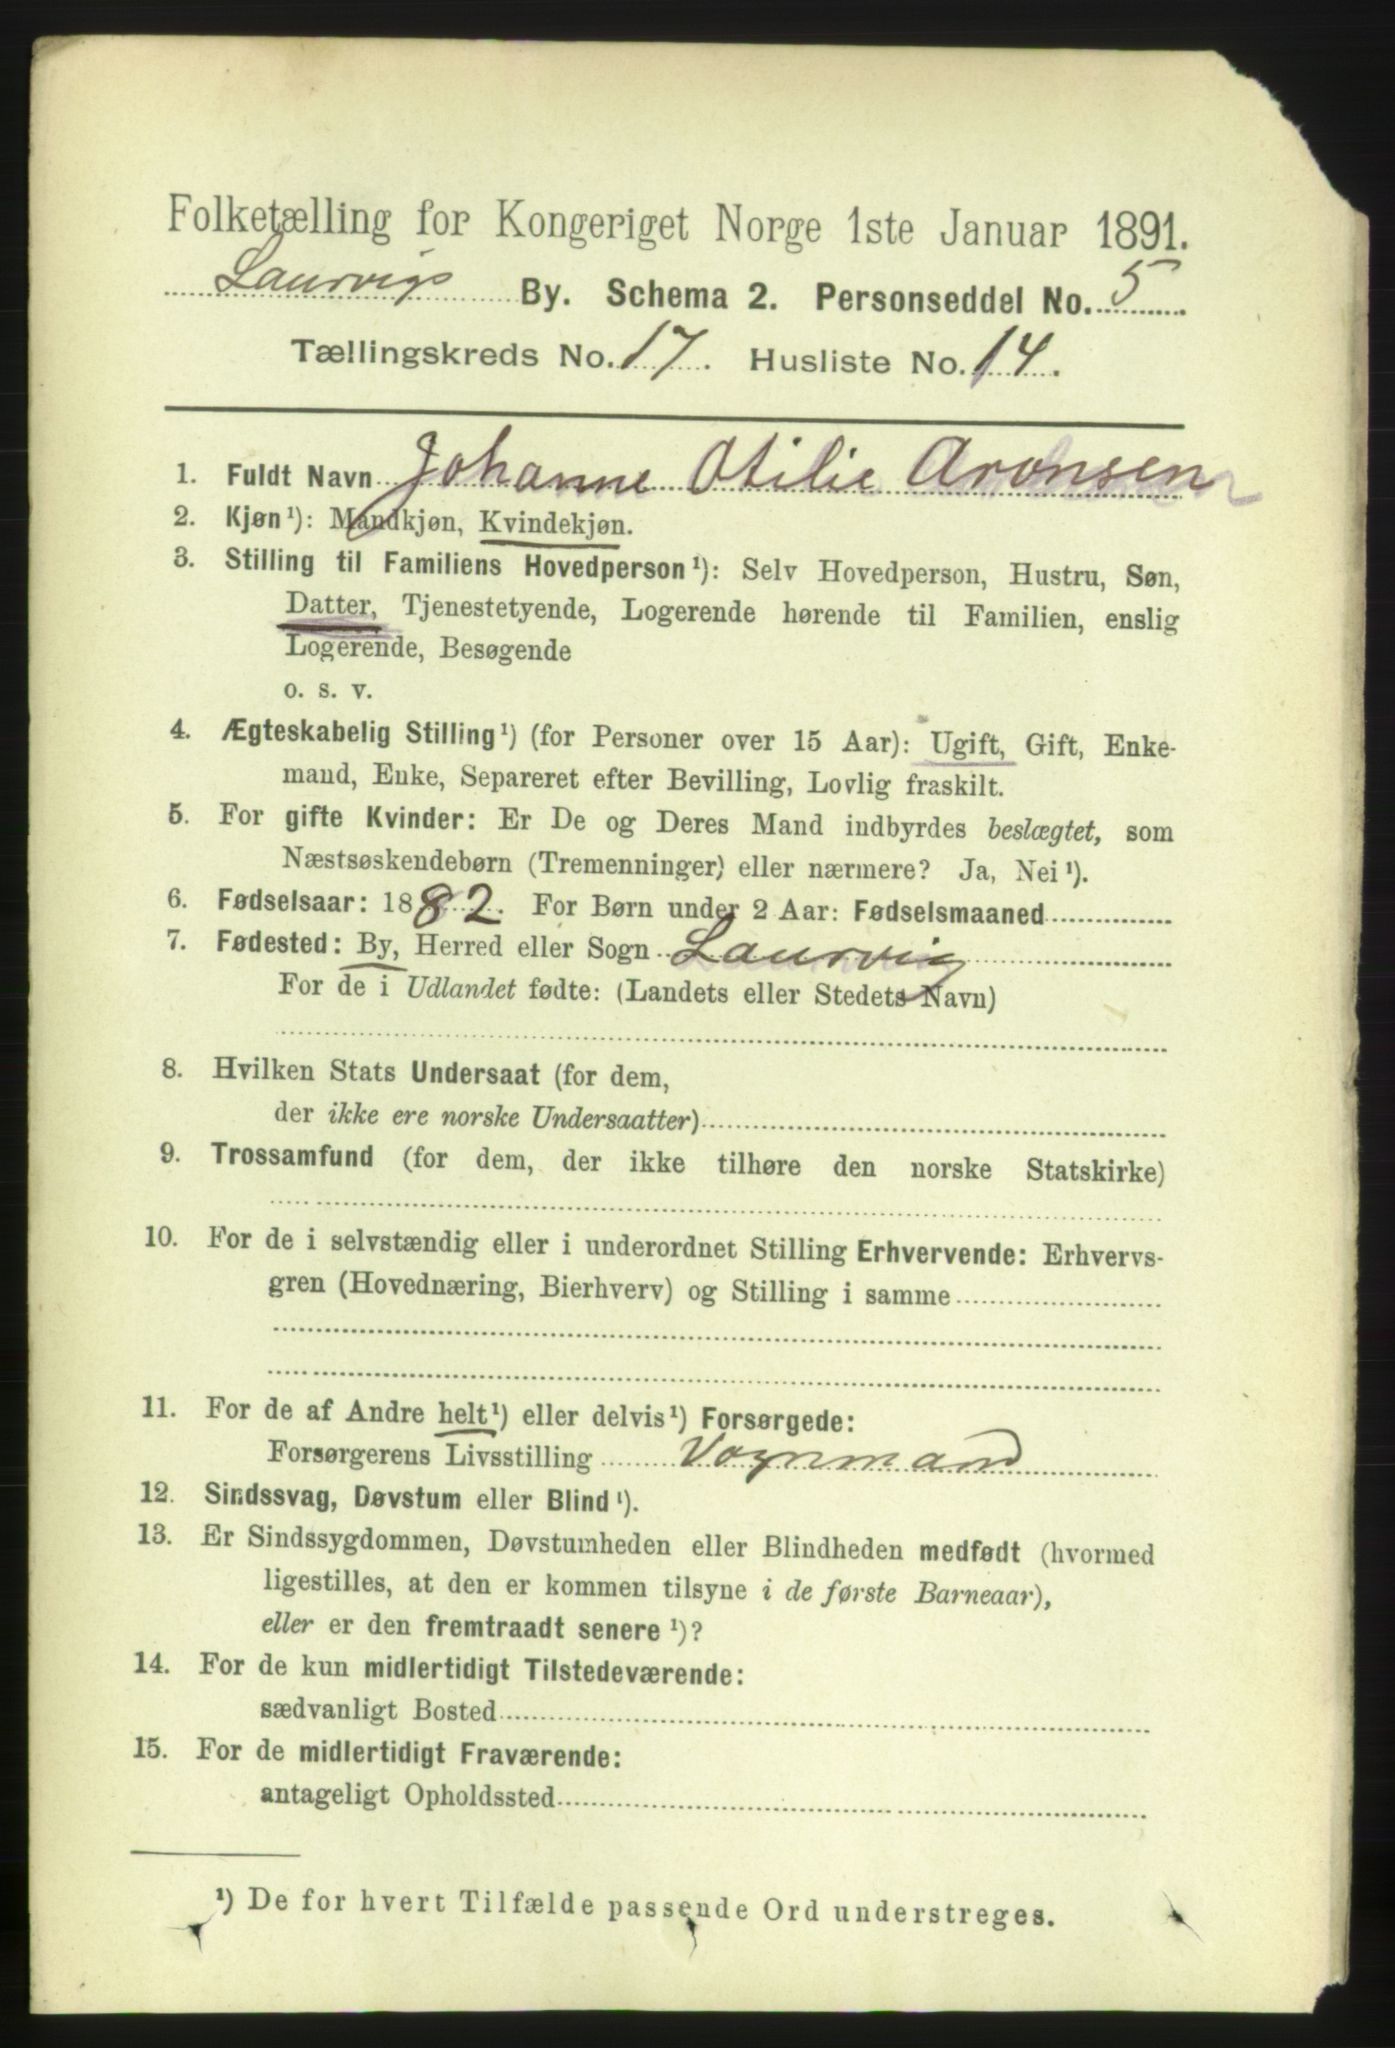 Folketælling for Kongeriget Norge 1ste Januar 1891.
Laurvigs By. Schema 2. Personseddel No. 5
Tællingskreds No. 17. Husliste No. 14.
1. Fuldt Navn Johanne Otilie Aronsen
2. Kjøn¹): Mandkjøn, Kvindekjøn.
3. Stilling til Familiens Hovedperson¹): Selv Hovedperson, Hustru, Søn,
Datter, Tjenestetyende, Logerende hørende til Familien, enslig
Logerende, Besøgende
o. s. v.
4. Ægteskabelig Stilling¹) (for Personer over 15 Aar): Ugift, Gift, Enke-
mand, Enke, Separeret efter Bevilling, Lovlig fraskilt.
5. For gifte Kvinder: Er De og Deres Mand indbyrdes beslægtet, som
Næstsøskendebørn (Tremenninger) eller nærmere? Ja, Nei¹).
6. Fødselsaar: 1882. For Børn under 2 Aar: Fødselsmaaned
7. Fødested: By, Herred eller Sogn Laurvig
For de i Udlandet fødte: (Landets eller Stedets Navn)
8. Hvilken Stats Undersaat (for dem,
der ikke ere norske Undersaatter)
9. Trossamfund (for dem, der ikke tilhøre den norske Statskirke)
10. For de i selvstændig eller i underordnet Stilling Erhvervende: Erhvervs-
gren (Hovednæring, Bierhverv) og Stilling i samme
11. For de af Andre helt¹) eller delvis¹) Forsørgede:
Forsørgerens Livsstilling Vognmand
12. Sindssvag, Døvstum eller Blind¹).
13. Er Sindssygdommen, Døvstumheden eller Blindheden medfødt (hvormed
ligestilles, at den er kommen tilsyne i de første Barneaar),
eller er den fremtraadt senere¹)?
14. For de kun midlertidigt Tilstedeværende:
sædvanligt Bosted
15. For de midlertidigt Fraværende:
antageligt Opholdssted
¹) De for hvert Tilfælde passende Ord understreges.